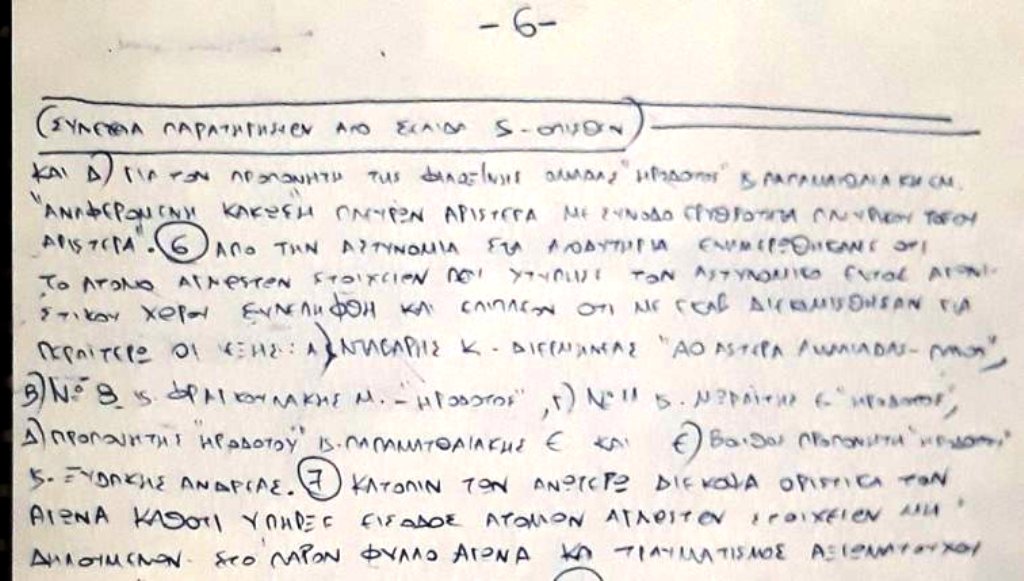 -6-
ΣΥΝΕΧΕΙΑ ΠΑΡΑΤΗΡΗΣΕΩΝ ΑΠΟ ΣΕΛΙΔΑ 5-ΟΠΙΣΘΕΝ
ΚΑΙ Δ) ΓΙΑ ΤΟΝ ΠΡΟΠΟΝΗΤΗ ΤΗΣ ΦΙΛΟΞΕΝΗΣ ΟΜΑΔΑΣ "ΗΡΟΔΟΤΟΣ" Κ. ΠΑΠΑΜΑΤΘΑΙΑΚΗ ΕΜ.
"ΑΝΑΦΕΡΟΜΕΝΗ ΚΑΚΩΣΗ ΠΛΕΥΡΩΝ ΑΡΙΣΤΕΡΑ ΜΕ ΣΥΝΟΔΟ ΕΡΥΘΡΟΤΗΤΑ ΠΛΕΥΡΙΚΟΥ ΤΟΞΟΥ
ΑΡΙΣΤΕΡΑ". 6 ΑΠΟ ΤΗΝ ΑΣΤΥΝΟΜΙΑ ΣΤΑ ΑΠΟΔΥΤΗΡΙΑ ΕΝΗΜΕΡΩΘΗΚΑΜΕ ΟΤΙ
ΤΟ ΑΤΟΜΟ ΑΓΝΩΣΤΩΝ ΣΤΟΙΧΕΙΩΝ ΠΟΥ ΧΤΥΠΗΣΕ ΤΟΝ ΑΣΤΥΝΟΜΙΚΟ ΕΝΤΟΣ ΑΓΩΝΙ-
ΣΤΙΚΟΥ ΧΩΡΟΥ ΣΥΝΕΛΗΦΘΗ ΚΑΙ ΕΠΙΠΛΕΟΝ ΟΤΙ ΜΕ ΕΚΑΒ ΔΙΕΚΟΜΙΣΘΗΣΑΝ ΓΙΑ
ΠΕΡΑΙΤΕΡΩ ΟΙ ΕΞΗΣ: Α) Κ. - ΔΙΕΡΜΗΝΕΑΣ "ΑΟ ΑΣΤΕΡΑ
Β) Νο 8 Κ. ΦΡΑΓΚΟΥΛΑΚΗΣ Μ. - "ΗΡΟΔΟΤΟΣ", Γ) Νο 11 Κ. Ε. "ΗΡΟΔΟΤΟΣ",
Δ) ΠΡΟΠΟΝΗΤΗΣ "ΗΡΟΔΟΤΟΥ" Κ. ΠΑΠΑΜΑΤΘΑΙΑΚΗΣ Ε ΚΑΙ Ε) ΒΟΗΘΟΣ ΠΡΟΠΟΝΗΤΗ "ΗΡΟΔΟΤΟΥ"
Κ. ΞΥΔΑΚΗΣ ΑΝΔΡΕΑΣ. 7 ΚΑΤΟΠΙΝ ΤΩΝ ΑΝΩΤΕΡΩ ΔΙΕΚΟΨΑ ΟΡΙΣΤΙΚΑ ΤΟΝ
ΑΓΩΝΑ ΚΑΘΟΤΙ ΥΠΗΡΞΕ ΕΙΣΟΔΟΣ ΑΤΟΜΩΝ ΑΓΝΩΣΤΩΝ ΣΤΟΙΧΕΙΩΝ ΜΗ
ΔΗΛΟΥΜΕΝΩΝ ΣΤΟ ΠΑΡΟΝ ΦΥΛΛΟ ΑΓΩΝΑ ΚΑΙ ΤΡΑΥΜΑΤΙΣΜΟΣ ΑΞΙΩΜΑΤΟΥΧΟΥ